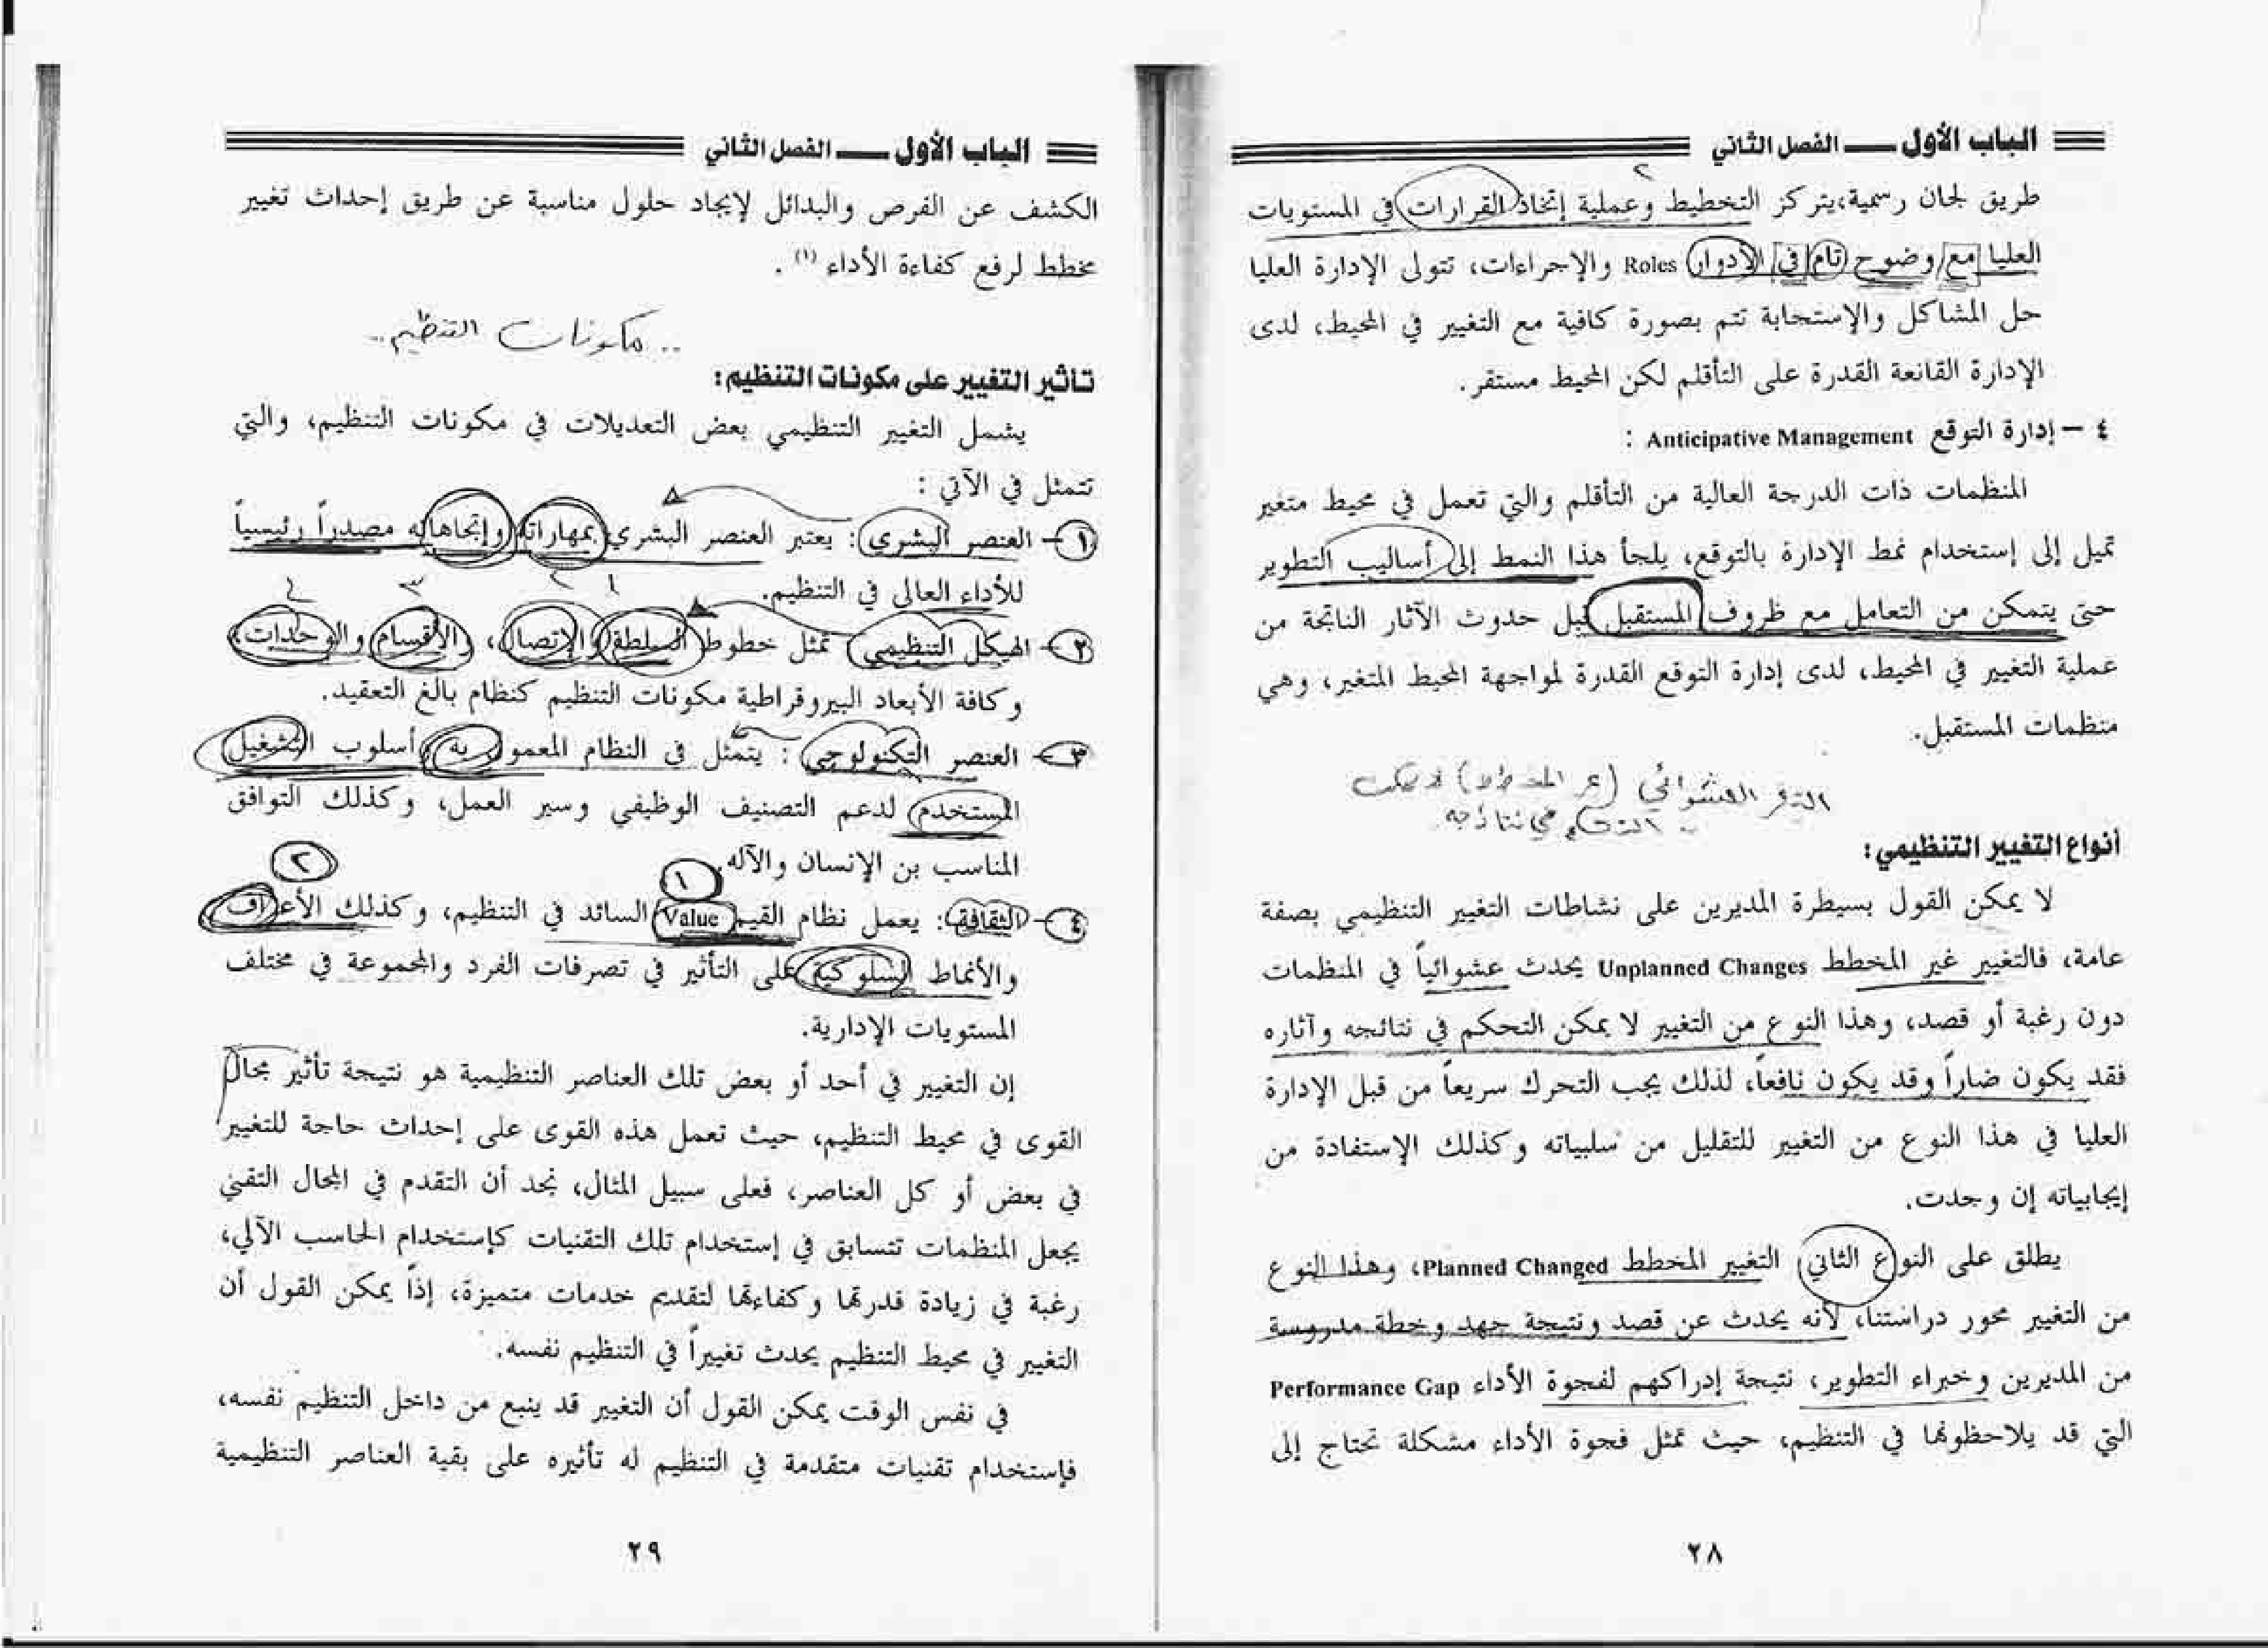 الباب الأول — الفصل الثاني
طريق لجان رسمية، يتركز التخطيط وعملية إتخاذ القرارات في المستويات
العليا مع وضوح تام في الأدوار Roles والإجراءات، تتولى الإدارة العليا
حل المشاكل والإستجابة تتم بصورة كافية مع التغيير في المحيط، لدى
الإدارة القانعة القدرة على التأقلم لكن المحيط مستقر.
٤ – إدارة التوقع Anticipative Management :
المنظمات ذات الدرجة العالية من التأقلم والتي تعمل في محيط متغير
تميل إلى إستخدام نمط الإدارة بالتوقع، يلجأ هذا النمط إلى أساليب التطوير
حتى يتمكن من التعامل مع ظروف المستقبل قبل حدوث الآثار الناتجة من
عملية التغيير في المحيط، لدى إدارة التوقع القدرة لمواجهة المحيط المتغير، وهي
منظمات المستقبل.
العشوائي
في نتائجه
أنواع التغيير التنظيمي:
لا يمكن القول بسيطرة المديرين على نشاطات التغيير التنظيمي بصفة
عامة، فالتغيير غير المخطط Unplanned Changes يحدث عشوائياً في المنظمات
دون رغبة أو قصد، وهذا النوع من التغيير لا يمكن التحكم في نتائجه وآثاره
فقد يكون ضاراً وقد يكون نافعاً، لذلك يجب التحرك سريعاً من قبل الإدارة
العليا في هذا النوع من التغيير للتقليل من سلبياته وكذلك الإستفادة من
إيجابياته إن وجدت.
يطلق على النوع الثاني التغيير المخطط Planned Changed، وهذا النوع
من التغيير محور دراستنا، لأنه يحدث عن قصد ونتيجة جهد وخطة مدروسة
من المديرين وخبراء التطوير، نتيجة إدراكهم لفجوة الأداء Performance Gap
التي قد يلاحظونها في التنظيم، حيث تمثل فجوة الأداء مشكلة تحتاج إلى
٢٨
الباب الأول — الفصل الثاني
الكشف عن الفرص والبدائل لإيجاد حلول مناسبة عن طريق إحداث تغيير
مخطط لرفع كفاءة الأداء (١) .
.. مكونات التنظيم ..
تأثير التغيير على مكونات التنظيم:
يشمل التغيير التنظيمي بعض التعديلات في مكونات التنظيم، والتي
تتمثل في الآتي :
١ – العنصر البشري : يعتبر العنصر البشري بمهاراته وإتجاهاته مصدراً رئيسياً
للأداء العالي في التنظيم.
١ ٢ ٣ ٤
٢ – الهيكل التنظيمي : تمثل خطوط السلطة والإتصال، والأقسام والوحدات،
وكافة الأبعاد البيروقراطية مكونات التنظيم كنظام بالغ التعقيد.
٣ – العنصر التكنولوجي : يتمثل في النظام المعمول به وأسلوب التشغيل
المستخدم لدعم التصنيف الوظيفي وسير العمل، وكذلك التوافق
المناسب بن الإنسان والآله.
١ ٢
٤ – الثقافة : يعمل نظام القيم Value السائد في التنظيم، وكذلك الأعراف
والأنماط السلوكية على التأثير في تصرفات الفرد والمجموعة في مختلف
المستويات الإدارية.
إن التغيير في أحد أو بعض تلك العناصر التنظيمية هو نتيجة تأثير مجال
القوى في محيط التنظيم، حيث تعمل هذه القوى على إحداث حاجة للتغيير
في بعض أو كل العناصر، فعلى سبيل المثال، نجد أن التقدم في المجال التقني
يجعل المنظمات تتسابق في إستخدام تلك التقنيات كإستخدام الحاسب الآلي،
رغبة في زيادة قدرتها وكفاءتها لتقديم خدمات متميزة، إذاً يمكن القول أن
التغيير في محيط التنظيم يحدث تغييراً في التنظيم نفسه.
في نفس الوقت يمكن القول أن التغيير قد ينبع من داخل التنظيم نفسه،
فإستخدام تقنيات متقدمة في التنظيم له تأثيره على بقية العناصر التنظيمية
٢٩